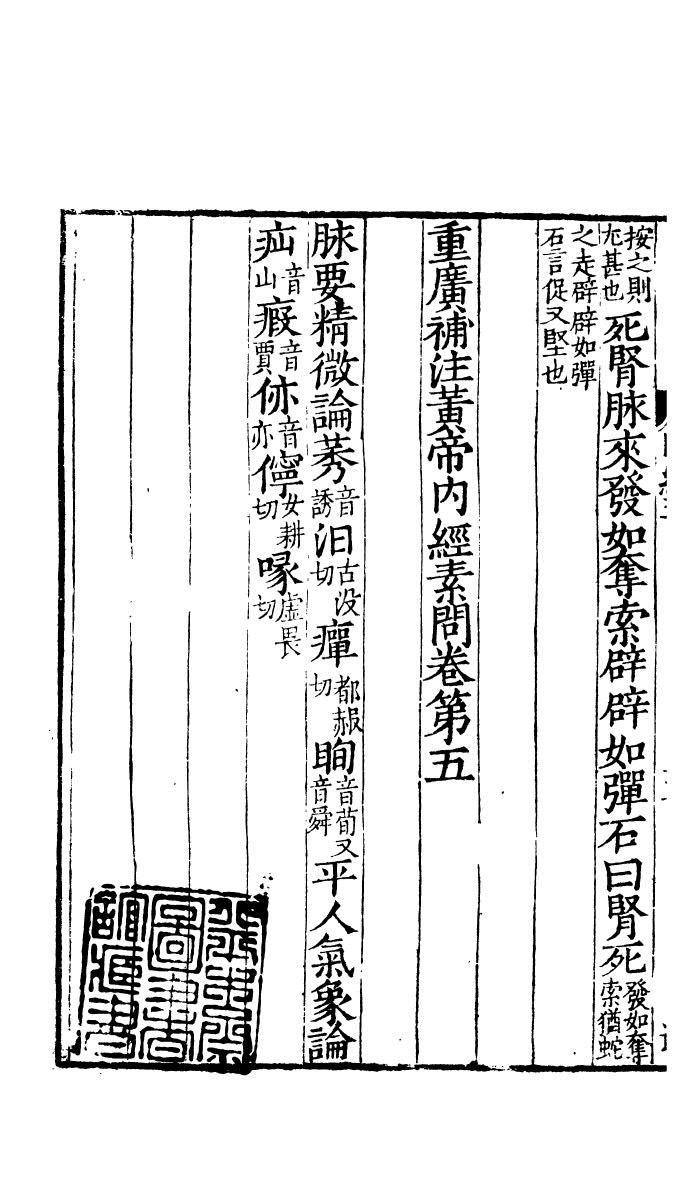 按之則
尤甚也死腎脉來發如奪索辟辟如彈石曰腎死發如奪
索猶蛇
之走辟辟如彈
石言促又堅也
重廣補注黃帝內經素問卷第五
脉要精微論莠音誘汩古没切癉都赧切眴音荀又音舜平人氣象論
疝音山瘕音賈㑊音亦儜女耕切喙虚畏切